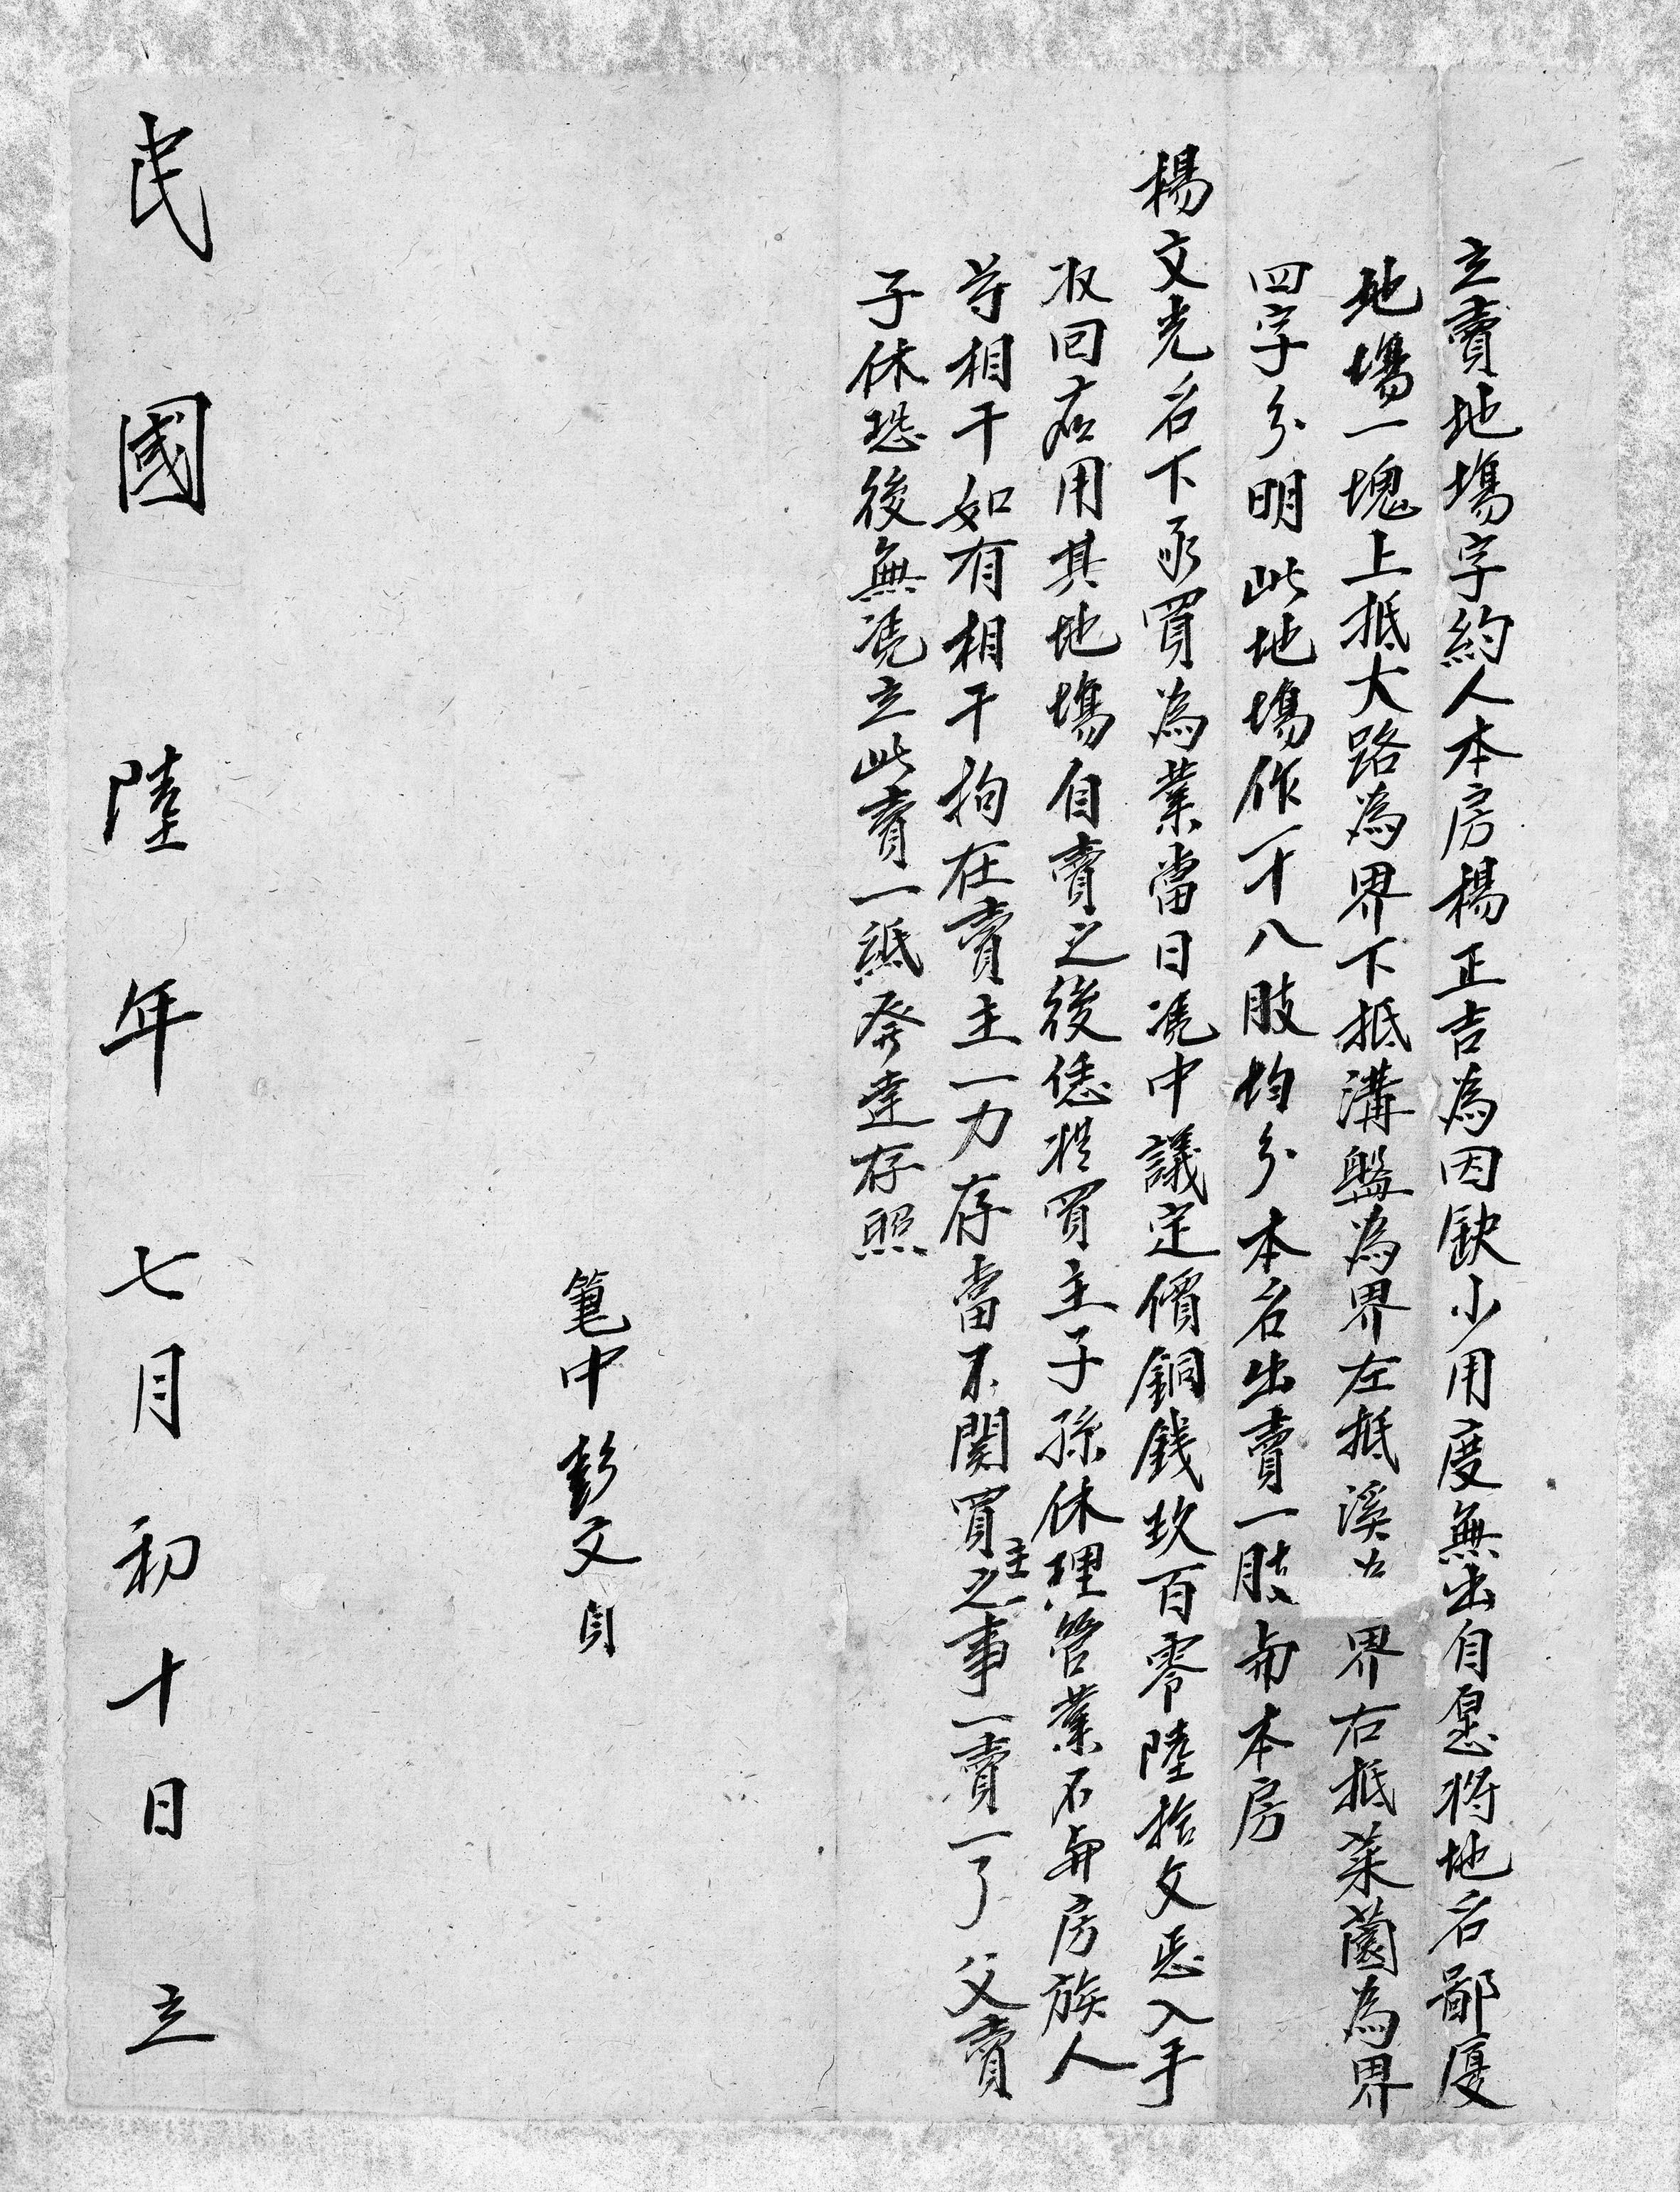 立賣地塲字約人本房楊正吉為因缺少用度無出自愿將地名鄙厦
地塲一塊上抵大路為界下抵溝盤為界左抵溪 界右抵菜薗為界
四字分明此地塲作一十八股均分本名出賣一股與本房
楊文光名下承買為業當日凴中議定價銅錢玖百零陸拾文悉入手
收回应用其地塲自賣之後恁㨿買主子孫休理管業不與房族人
等相干如有相干拘在賣主一力存當不関買主之事一賣一了父賣
子休恐後無凴立此賣一紙發達存照
筆中彭文自
民國陸年七月初十日立